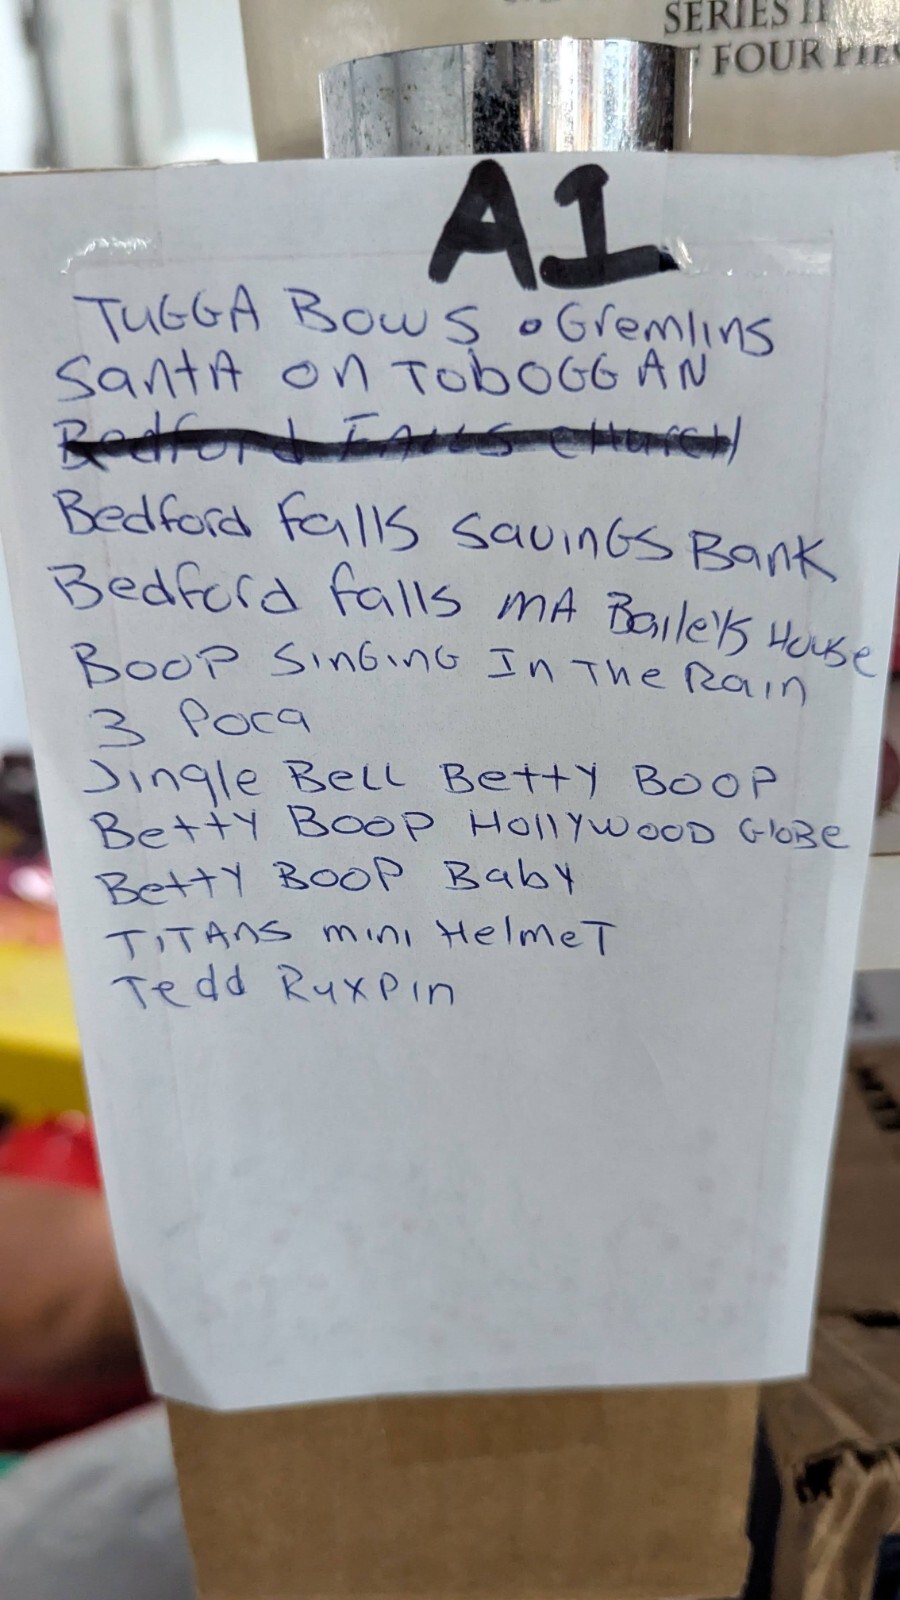 SERIES II
FOUR PIE
A1
TUGGA BOWS • Gremlins
SantA on TobOGGAN
Bedford FALLS CHURCH
Bedford Falls SAVINGS BANK
Bedford Falls MA Bailey's House
BOOP SINGING In The Rain
3 Poca
Jingle Bell Betty BOOP
Betty BOOP HollyWOOD GloBe
Betty BOOP Baby
TITANS mini HelmeT
Tedd Ruxpin